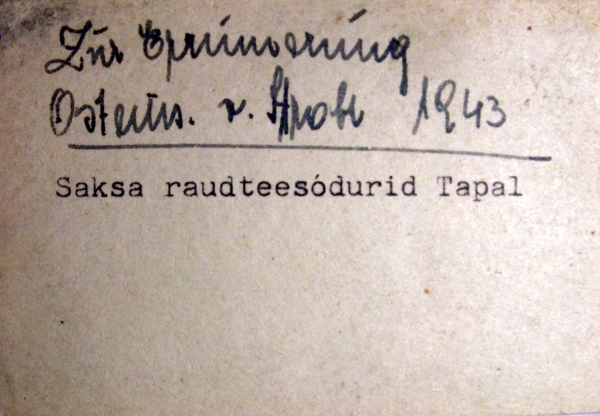 Zur Erinnerung
1943
Saksa raudteesódurid Tapal